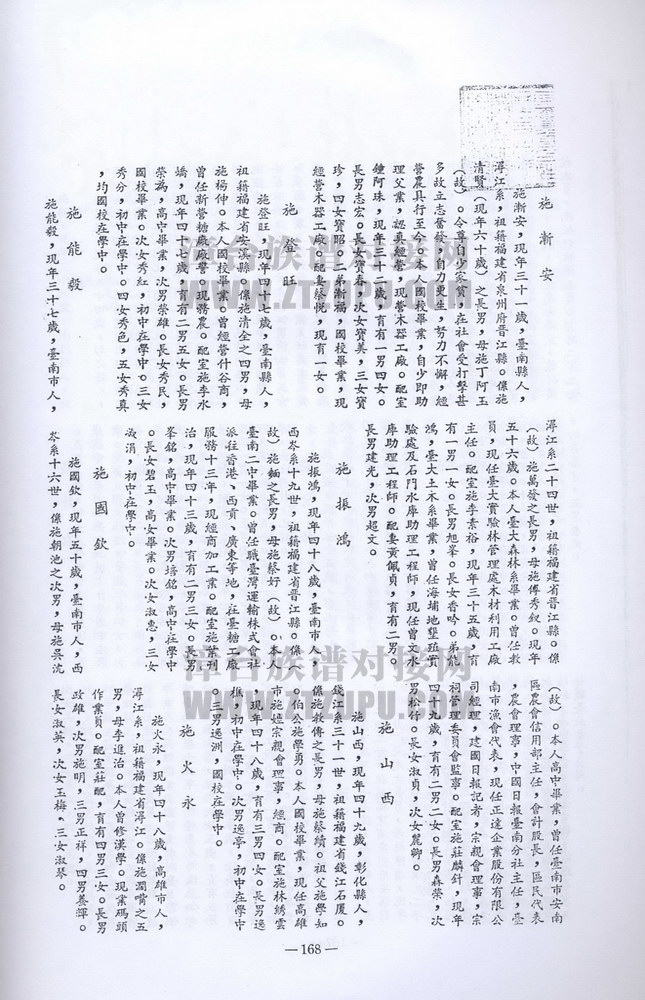 施漸安
施漸安，現年三十一歲，臺南縣人，
潯江系，祖籍福建省泉州府晉江縣。係施
清賢（現年六十歲）之長男，母施丁阿玉
（故）。令尊自少家貧，在社會受打擊甚
多故立志奮發，自力更生，努力不懈，經
營農具行至今。本人國校畢業，自少即助
理父業，認真經營，現營木器工廠。配室
鍾阿珠，現年三十歲，育有一男四女。
長男志宏。長女寶春，次女寶美，三女寶
珍，四女寶昭。二弟漸福，國校畢業，現
經營木器工廠。配妻蔡悅，現育一女。
施登旺
施登旺，現年四十七歲，臺南縣人，
祖籍福建省安溪縣。係施清全之四男，母
施楊仲。本人國校畢業。曾經營什谷商，
曾任新營糖廠廠警。現務農。配室施李水
嬌，現年四十七歲，育有二男五女。長男
榮為，高中畢業，次男榮雄。長女秀民，
國校畢業。次女秀紅，初中在學中。三女
秀分，初中在學中。四女秀色，五女秀真
，均國校在學中。
施能毅
施能毅，現年三十七歲，臺南市人，
潯江系二十四世，祖籍福建省晉江縣。係
（故）施萬發之長男，母施傅秀釵。現年
五十六歲。本人臺大森林系畢業。曾任教
員，現任臺大實驗林管理處木材利用工廠
主任。配室施李素裕，現年三十五歲，育
有一男一女。長男旭峯。長女香吟。弟能
鴻，臺大土木系畢業，曾任海埔地墾殖實
驗處及石門水庫助理工程師，現任曾文水
庫助理工程師。配妻黃佩貞，育有二男。
長男建光，次男超文。
施振鴻
施振鴻，現年四十八歲，臺南市人，
西岑系十九世，祖籍福建省晉江縣。係（
故）施鈿之長男，母施蔡好（故）。本人
臺南二中畢業。曾任職臺灣運輸株式會社
派往香港、西貢、廣東等地，在臺糖工廠
服務十三年，現經商加工業。配室施葉刊
治，現年四十三歲，育有二男三女。長男
峯銘，高中畢業。次男培銘，高中在學中
。長女碧玉，高女畢業。次女淑惠，三女
淑涓，初中在學中。
施國欽
施國欽，現年五十歲，臺南市人，西
岑系十六世，係施朝池之次男，母施吳沈
（故）。本人高中畢業，曾任臺南市安南
區農會信用部主任，會計股長，區民代表
，農會理事，中國日報臺南分社主任，臺
南市漁會代表，現任正達企業股份有限公
司經理，建國日報記者，宗親會理事，宗
祠管理委員會監事。配室施莊麟針，現年
四十九歲，育有二男二女。長男森榮，次
男松竹。長女淑貞，次女麗卿。
施山西
施山西，現年四十九歲，彰化縣人，
錢江系三十一世，祖籍福建省錢江石厦。
係施教傳之長男，母施蔡續。祖父施學知
。伯公施學勇。本人國校畢業，現任高雄
市施姓宗親會理事，經商。配室施林綉雲
，現年四十八歲，育有三男四女。長男逸
樵，初中在學中。次男逸亭，初中在學中
。三男逸洲，國校在學中。
施火永
施火永，現年四十八歲，高雄市人，
潯江系，祖籍福建省潯江。係施潤嘴之五
男，母李進治。本人曾修漢學。現業碼頭
作業員。配室莊配，育有四男三女。長男
政雄，次男施明，三男正祥，四男榮輝。
長女淑英，次女玉梅，三女淑琴。
—168—
漳台族谱对接网
WWW.ZTZUPU.COM
漳台族谱对接网
WWW.ZTZUPU.COM